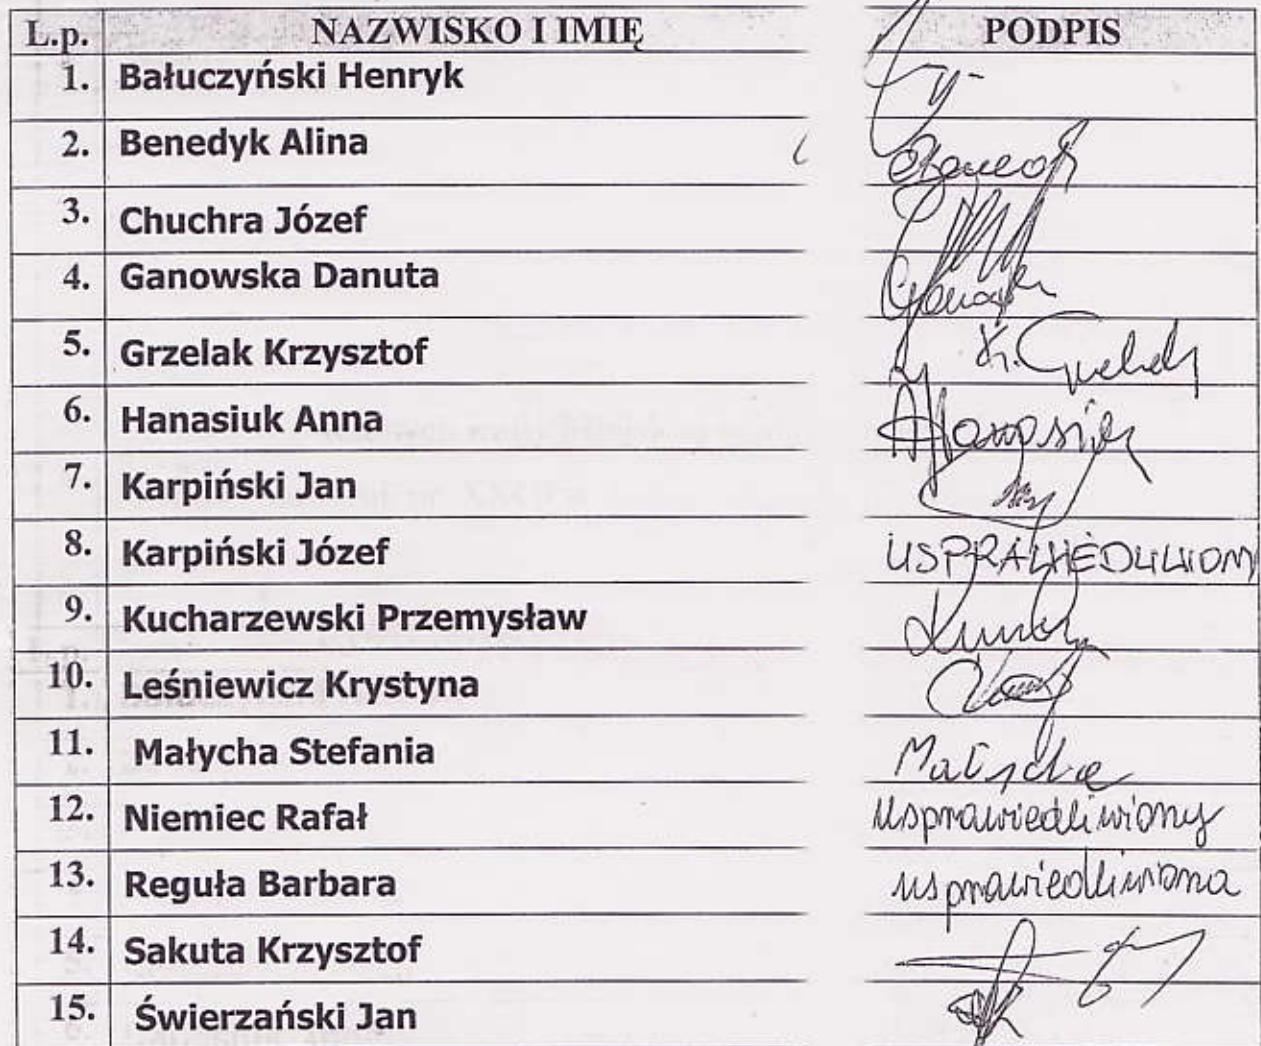 L.p. NAZWISKO I IMIĘ PODPIS
1. Bałuczyński Henryk
2. Benedyk Alina
3. Chuchra Józef
4. Ganowska Danuta
5. Grzelak Krzysztof K. Grzelak
6. Hanasiuk Anna
7. Karpiński Jan
8. Karpiński Józef USPRAWIEDLIWIONY
9. Kucharzewski Przemysław
10. Leśniewicz Krystyna
11. Małycha Stefania Małycha
12. Niemiec Rafał usprawiedliwiony
13. Reguła Barbara usprawiedliwiona
14. Sakuta Krzysztof
15. Świerzański Jan